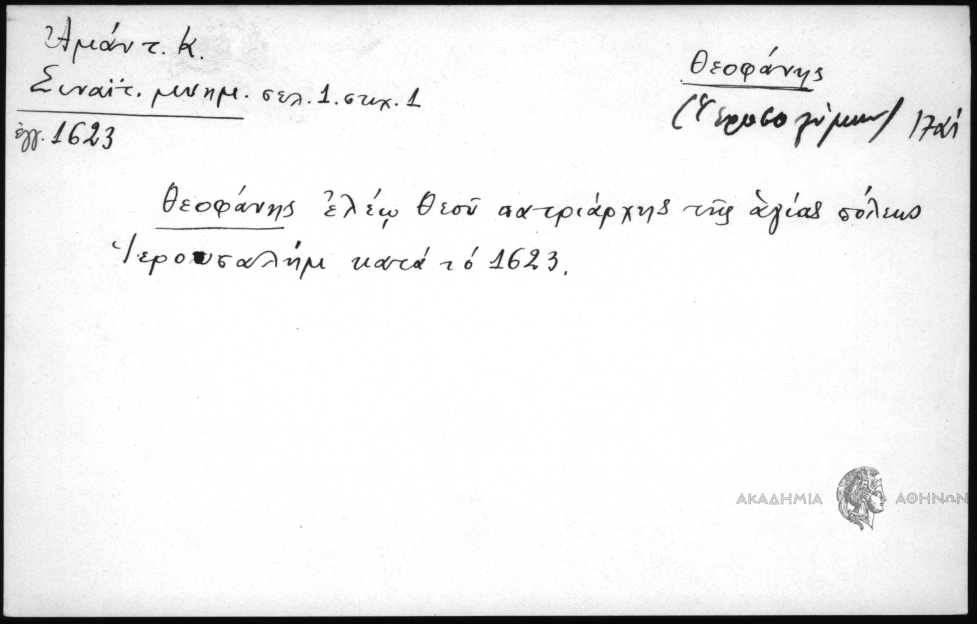 Ἀμάντ. Κ.
Σιναϊτ. μνημ. σελ. 1. στιχ. 1
ἐγγ. 1623
Θεοφάνης
(Ἱεροσολύμων) 17 αἰ
Θεοφάνης ἐλέῳ Θεοῦ πατριάρχης τῆς ἁγίας πόλεως
Ἱερουσαλήμ κατά τό 1623.
ΑΚΑΔΗΜΙΑ ΑΘΗΝΩΝ